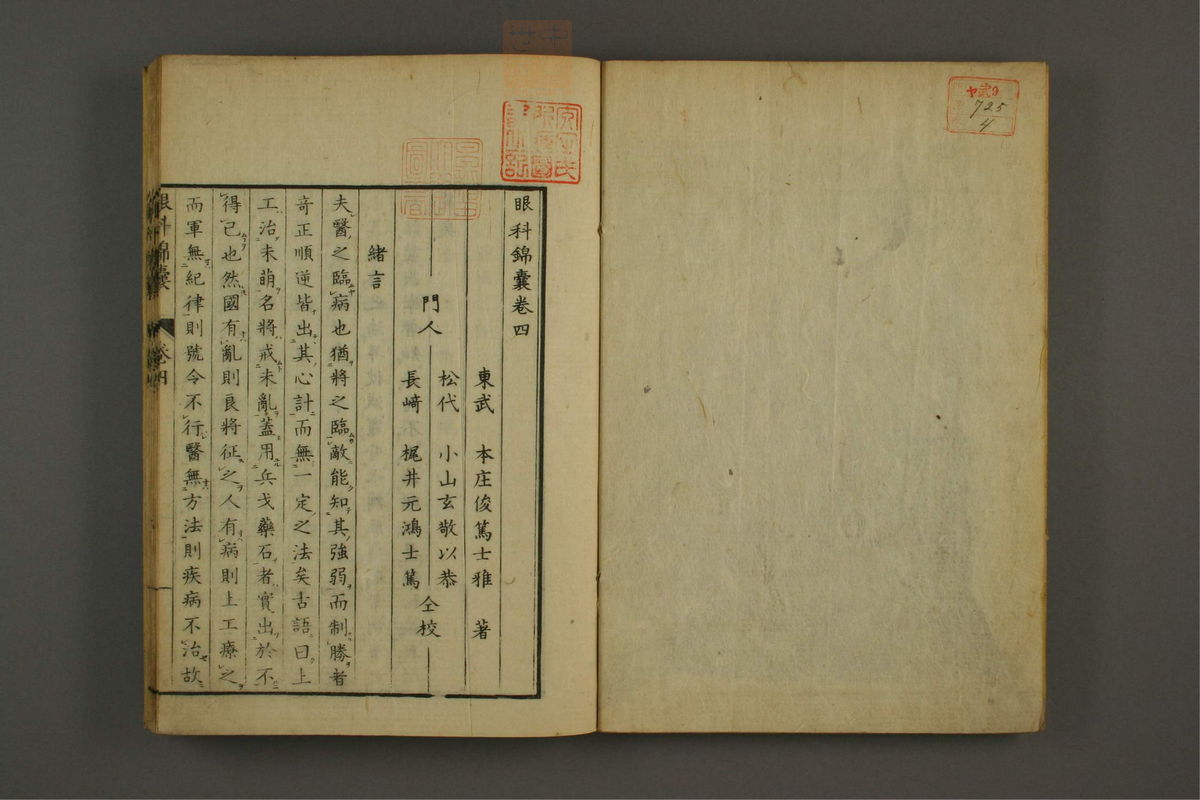 ヤ武9
725
4
眼科錦囊卷四
東武　本庄俊篤士雅　著
門人
松代　小山玄敬以恭
長崎　梶井元鴻士篤
仝校
緒言
夫醫之臨病也猶將之臨敵能知其強弱而制勝者
竒正順逆皆出其心計而無一定之法矣古語曰上
工治未萌名將戒未亂蓋用兵戈藥石者實出於不
得已也然國有亂則良將征之人有病則上工療之
而軍無紀律則號令不行醫無方法則疾病不治故
眼科錦囊　卷四